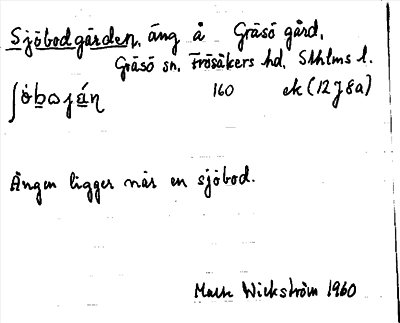 Sjöbodgården, äng å Gräsö gård,
Gräsö sn, Frösåkers hd, Sthlms l.
ʃöbωján 160 ek (12J8a)
Ängen ligger när en sjöbod.
Wickström 1960